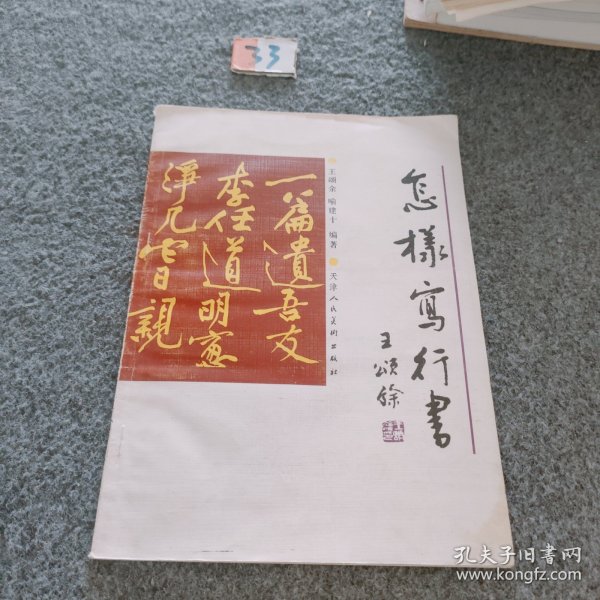 33
怎樣寫行書
王頌餘
王頌余 喻建十 编著
天津人民美術出版社
一篇遺吾友
李任道明窗
淨几當親
孔夫子旧书网
www.kongfz.com